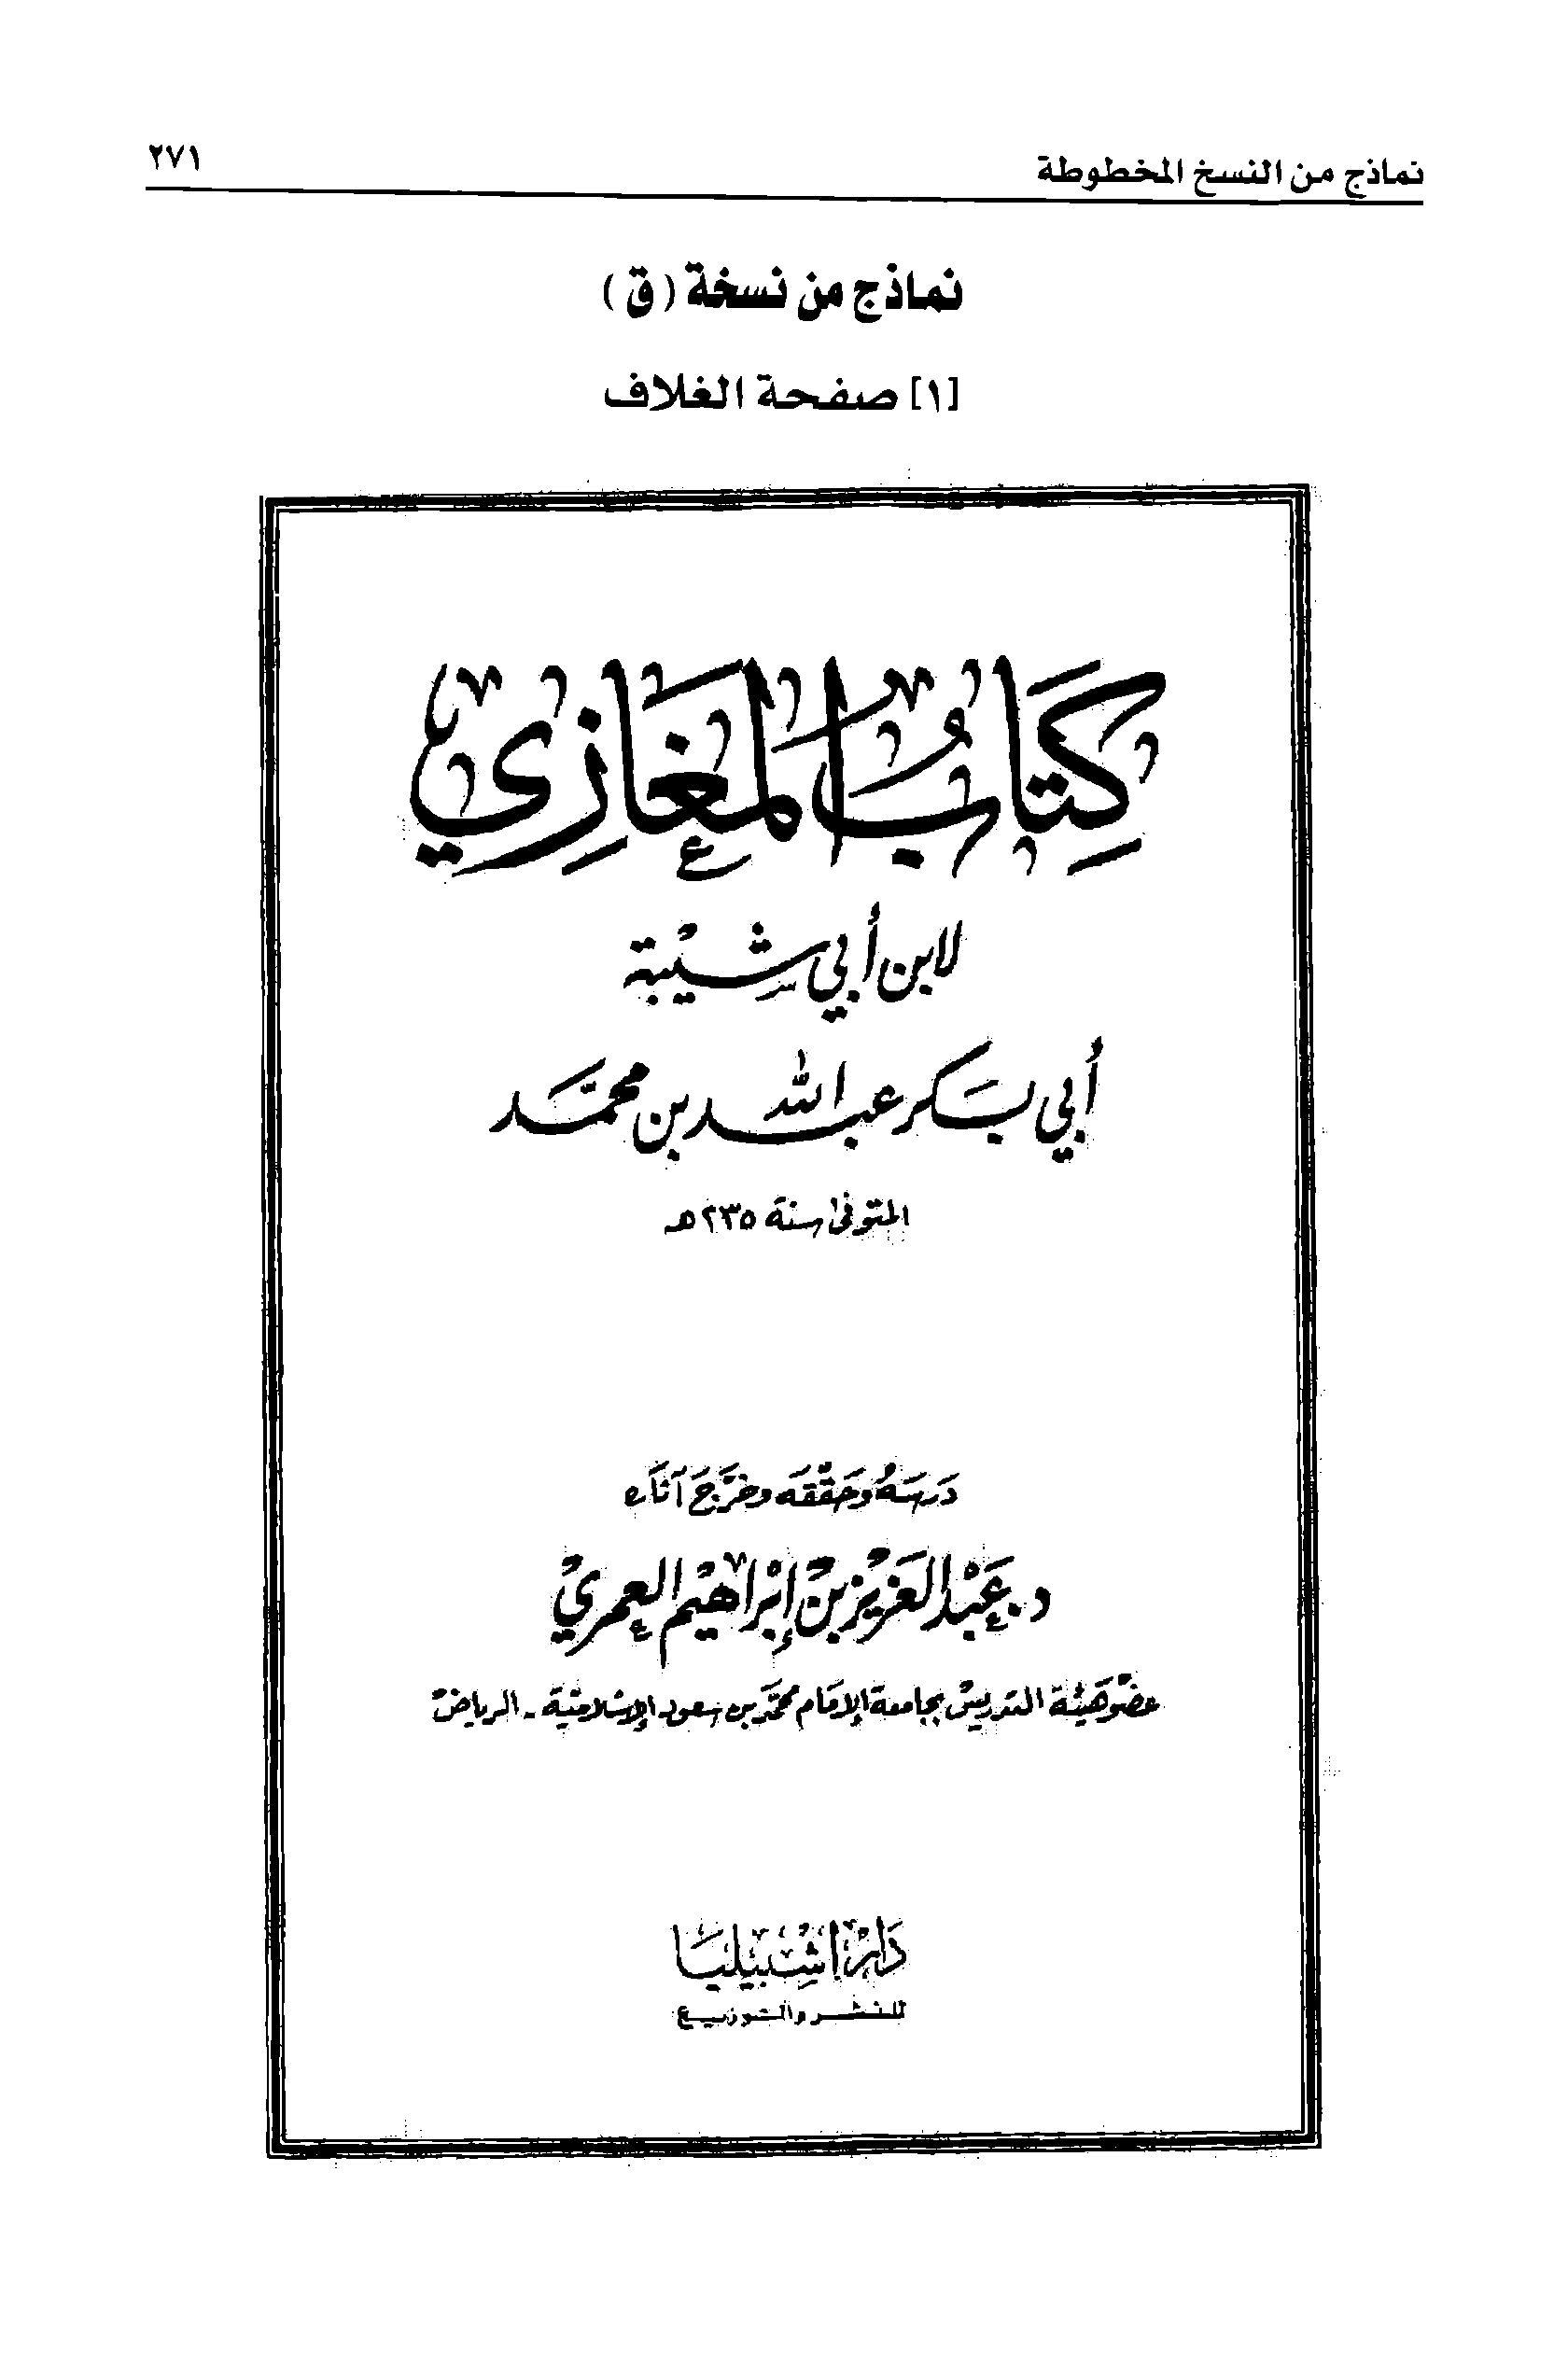 نماذج من النسخ المخطوطة ٢٧١
نماذج من نسخة (ق)
[١] صفحة الغلاف
كِتَابُ المغَازِي
لابن أبي شيْبة
أبي بكر عبد الله بن محمَّد
المتوفى سنة ٢٣٥ هـ
دَرَسَهُ وَحَقَّقَه وخرَّجَ آثارَه
د. عَبْد العَزيْز بْن إبْراهيْم العمريْ
عضْو هَيئة التدريسْ بجامعة الإمَام محمَّد بن سعود الإسْلاميَّة - الرياضْ
دَارُ اشْبيليَا
للنشر والتوزيع